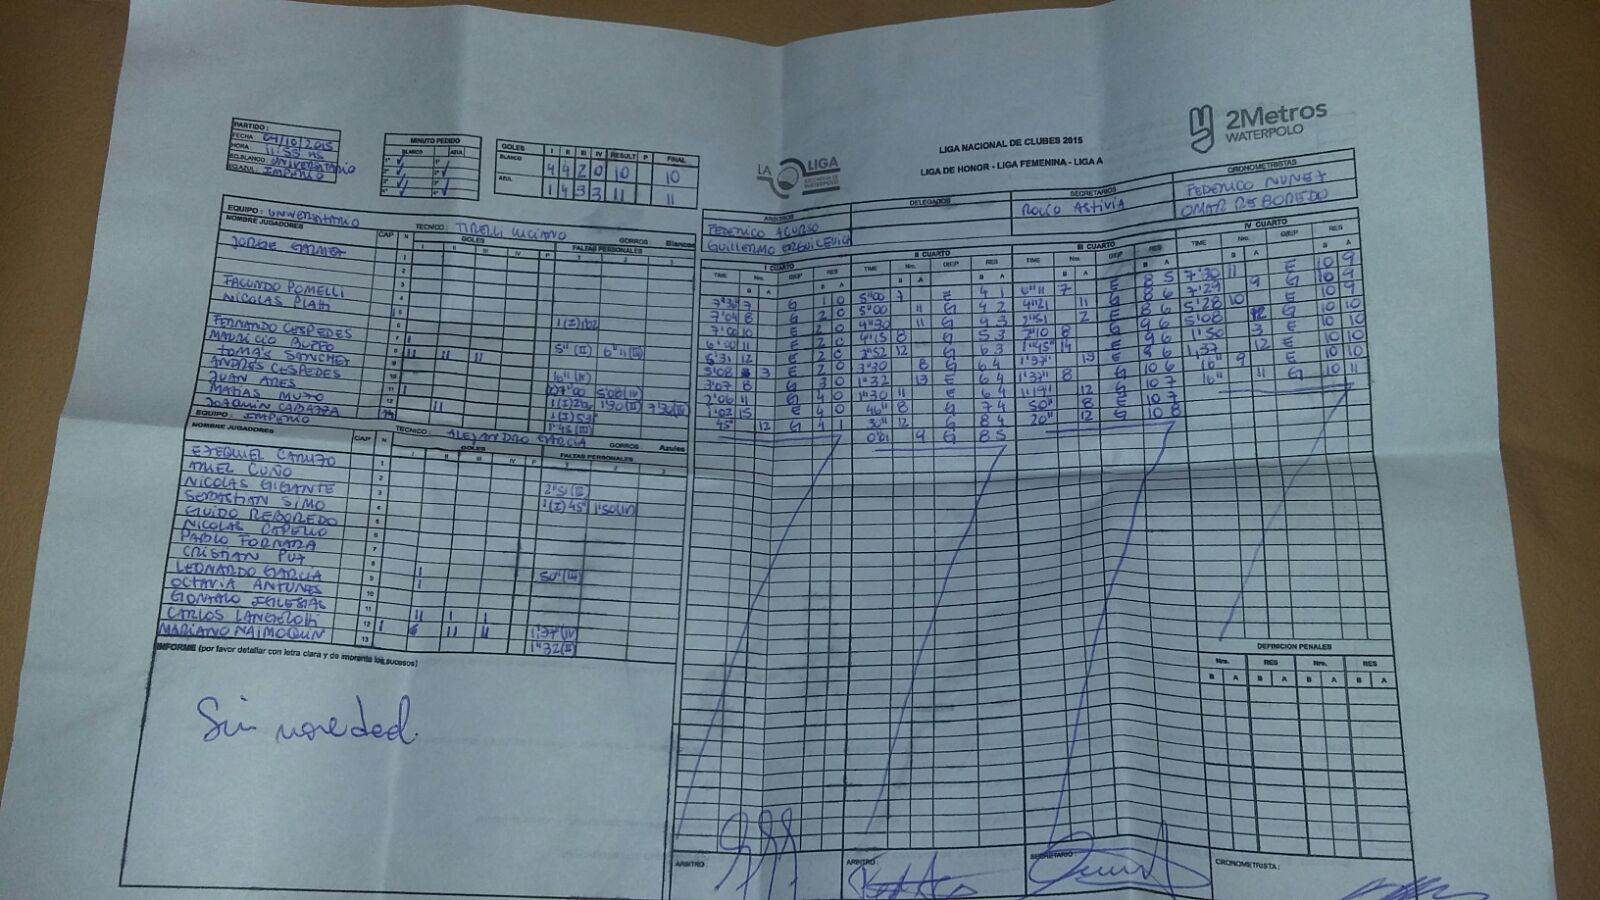 PARTIDO:
FECHA 04/10/2015
HORA: 11:55 HS
EQ.BLANCO UNIVERSITARIO
EQ.AZUL IMPERIO
MINUTO PEDIDO
BLANCO AZUL
GOLES I II III IV RESULT P FINAL
BLANCO 4 4 2 0 10 10
AZUL 1 4 3 3 11 11
LA LIGA
LIGA NACIONAL DE CLUBES 2015
LIGA DE HONOR - LIGA FEMENINA - LIGA A
2Metros
WATERPOLO
ARBITROS DELEGADOS SECRETARIOS CRONOMETRISTAS
FEDERICO ACURSO ROCCO ASTIVIA FEDERICO NUÑEZ
GUILLERMO OMAR REBOREDO
EQUIPO: UNIVERSITARIO TECNICO: TIRELLI LUCIANO GORROS Blancos
NOMBRE JUGADORES CAP N GOLES FALTAS PERSONALES
I II III IV P 1 2 3
JORGE 1
2
3
FACUNDO POMELLI 4
NICOLAS PLATI 5
FERNANDO CESPEDES 6
MAURICIO 7
TOMAS SANCHEZ 8
ANDRES CESPEDES 9
JUAN ARES 10
MATIAS MUTO 11
JOAQUIN 12
EQUIPO: IMPERIO TECNICO: ALEJANDRO GARCIA GORROS Azules
NOMBRE JUGADORES CAP N GOLES FALTAS PERSONALES
I II III IV P 1 2 3
EZEQUIEL CARUZO 1
ARIEL CUÑO 2
NICOLAS GIGANTE 3 2"51(III)
SEBASTIAN SIMO 4
GUIDO REBOREDO 5
NICOLAS 6
PABLO FORNARA 7
CRISTIAN 8
LEONARDO GARCIA 9 50"(III)
OCTAVIA ANTUNES 10
GONZALO IGLESIAS 11
CARLOS 12 1'37"(IV)
MARIANO NAIMOGUIN 13 1"32(II)
INFORME (por favor detallar con letra clara y de imprenta los sucesos)
Sin novedad.
I CUARTO
TIME Nro. G/E/P RES
B A B A
7 G 1 0
7"04 8 G 2 0
7"00 10 E 2 0
6"00 11 E 2 0
5'31 12 E 2 0
5'08 3 E 2 0
3"07 8 G 3 0
2"06 11 G 4 0
1'02 15 E 4 0
45" 12 G 4 1
II CUARTO
TIME Nro. G/E/P RES
B A B A
5"00 7 E 4 1
5"00 11 G 4 2
4"30 11 G 4 3
4"15 8 G 5 3
3"52 12 G 6 3
3"30 8 G 6 4
1"32 13 E 6 4
1"30 11 E 6 4
46" 8 G 7 4
30" 12 G 8 4
0"01 9 G 8 5
III CUARTO
TIME Nro. G/E/P RES
B A B A
6"11 7 E 8 5
4"21 11 G 8 6
2"51 2 E 8 6
2"10 8 G 9 6
1"45" 14 E 9 6
13 E 9 6
1"32" 8 G 10 6
1"19" 12 G 10 7
50" 8 E 10 7
20" 12 G 10 8
IV CUARTO
TIME Nro. G/E/P RES
B A B A
7"30 11 E 10 9
7"29 9 G 10 9
5"28 10 E 10 9
5"08 12 G 10 10
1"50 3 E 10 10
1,37 12 E 10 10
16" 9 E 10 10
16" 11 G 10 11
DEFINICION PENALES
Nro. RES Nro. RES
B A B A B A B A
ARBITRO: ARBITRO: SECRETARIO: CRONOMETRISTA: